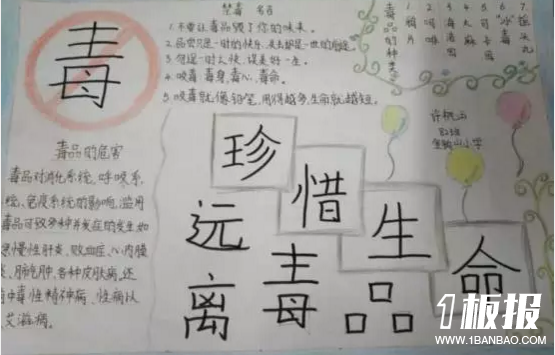 毒
禁毒 名言
1.不要让毒品毁了你的未来。
2.品尝只是一时的快乐,失去却是一世的
3.
4.吸毒 毒身,毒心,毒命。
5.吸毒就像铅笔,用得越多,生命就越短。
毒品的种类
1.鸦片
2.吗啡
3.海洛因
4.大麻
5.可卡因
6.冰毒
7.摇头丸
毒品的危害
毒品对消化系统,呼吸系
统、免疫系统的影响,滥用
毒品可致多种并发症的发生,如
慢性肝炎、败血症、心内膜
、肺脓肿、各种皮肤病,还
中毒性精神病、性病以
艾滋病。
珍惜生命
远离毒品
1板报
WWW.1BANBAO.COM